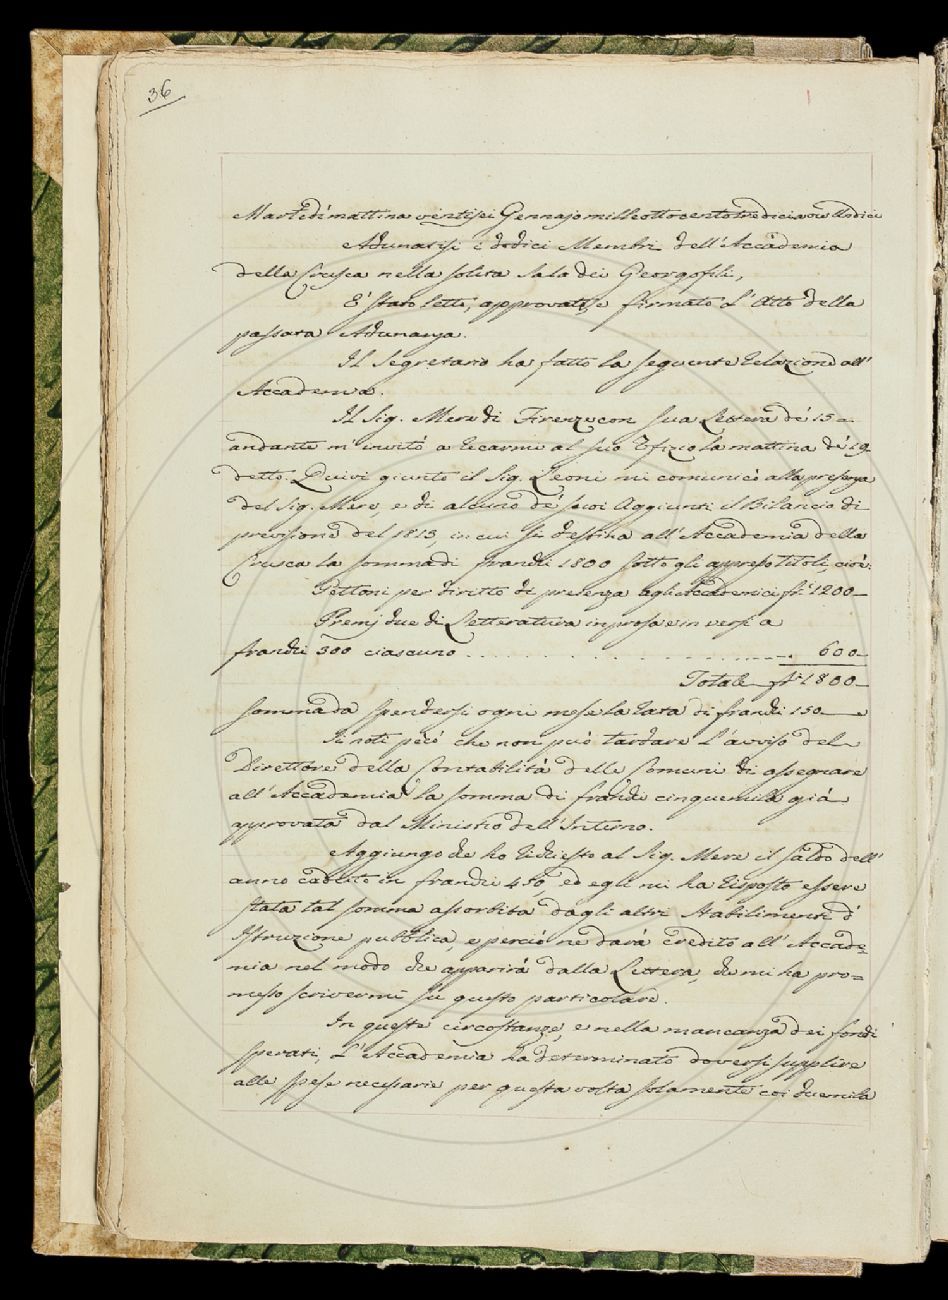 36
Martedì mattina ventisei Gennajo mille ottocento tredici a ore Undici
Adunatisi i dodici Membri dell'Accademia
della Crusca nella solita Sala dei Georgofili,
E' stato letto, approvato, e firmato l'Atto della
passata Adunanza.
Il Segretario ha fatto la seguente Relazione all'
Accademia.
Il Sig. Mere di Firenze con sua Lettera de' 15
andante m'invitò a recarmi al suo Ufizio la mattina de' 19
detto. Quivi giunto il Sig. Leoni mi comunicò alla presenza
del Sig. Mere, e di alcuno de' suoi Aggiunti il Bilancio di
previsione del 1813, in cui si destina all'Accademia della
Crusca la somma di franchi 1800 sotto gli appresso titoli, cioè:
Gettoni per diritto di presenza agli Accademici fr.i 1200
Premj due di Letteratura in prosa e in versi a
franchi 300 ciascuno . . . . . . . . . . . . . . . . . 600
Totale fr.i 1800
somma da spendersi ogni mese la rata di franchi 150
Si noti però che non può tardare l'avviso del
Direttore della Contabilità delle Comuni di assegnare
all'Accademia la somma di franchi cinquemila già
approvata dal Ministro dell'Interno.
Aggiungo che ho richiesto al Sig. Mere il saldo dell'
anno caduto in franchi 450, ed egli mi ha risposto essere
stata tal somma assorbita dagli altri Stabilimenti d'
Istruzione pubblica, e perciò ne darà credito all'Accade=
mia nel modo che apparirà dalla Lettera, che mi ha pro=
messo scrivermi su questo particolare.
In queste circostanze, e nella mancanza dei fondi
sperati, l'Accademia ha determinato doversi supplire
alle spese necessarie per questa volta solamente coi duemila